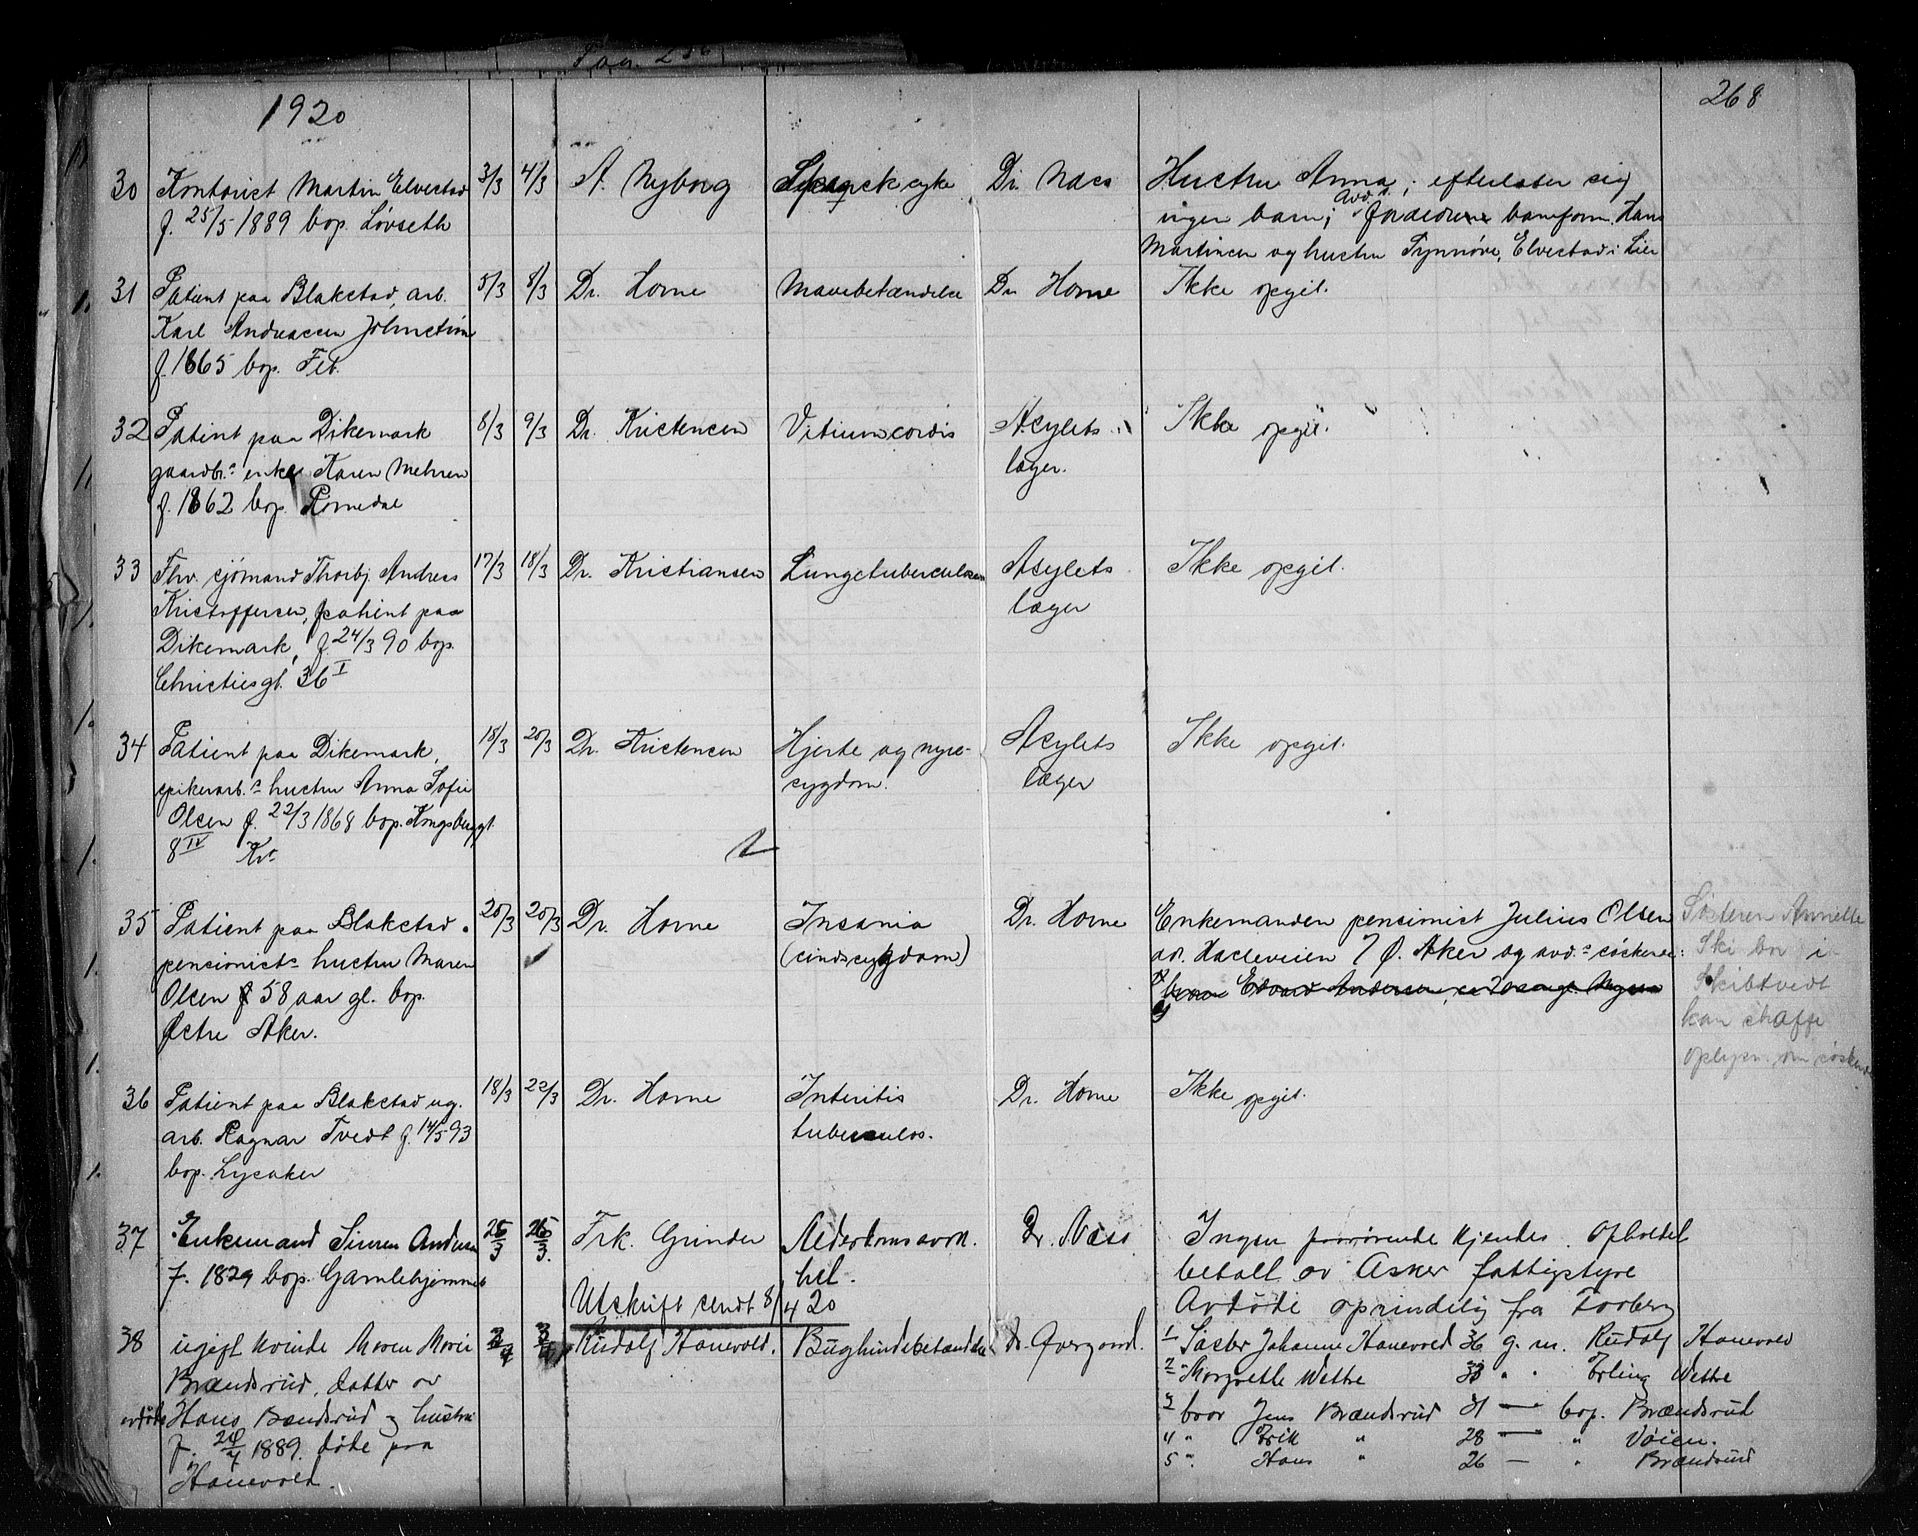 1920
268
30 Kontorist Martin Elvestad 3/3 4/3 A. Nyborg Spansk syke Dr. Næss Hustru Anna; efterlater sig
f. 25/5 1889 bop. Løvseth ingen barn; Avd. forældre barnform. Hans
Martinsen og hustru Synnøve, Elvestad i Lier
31 Patient paa Blakstad, arb. 5/3 8/3 Dr. Horne Mavebetændelse Dr. Horne Ikke opgit.
Karl Andreassen Johnstøn
f. 1865 bop. Fet.
32 Patient paa Dikemark 8/3 9/3 Dr. Kristensen Vitium cordis Asylets Ikke opgit.
gaardbr.s enke Karen Mehren læger.
f. 1862 bop. Romedal
33 Fhv. sjømand Thorbj. Andreas 17/3 18/3 Dr. Kristiansen Lungetuberculose Asylets Ikke opgit.
Kristoffersen, patient paa læger
Dikemark, f. 24/3 90 bop.
Christiesgt. 36 I
34 Patient paa Dikemark, 18/3 20/3 Dr. Kristensen Hjerte og nyre- Asylets Ikke opgit.
spikerarb.s hustru Anna Sofie sygdom. læger
Olsen f. 22/3 1868 bop. Kongsberggt.
8 IV Kr.
35 Patient paa Blakstad 20/3 20/3 Dr. Horne Insania Dr. Horne Enkemanden pensionist Julius Olsen Søsteren Annette
pensionists hustru Maren (sindssygdom) ad. Hasleveien 7 Ø. Aker og avd.s søskende: Ski bor i
Olsen f 58 aar gl. bop. Edvard Andersen, Skibtvedt
Østre Aker. kan skaffe
oplysn. om søskende
36 Patient paa Blakstad ug. 18/3 22/3 Dr. Horne Interitis Dr. Horne Ikke opgit.
arb. Ragnar Tvedt f. 14/5 93 tuberculos.
bop. Lysaker
37 Enkemand Simen Andersen 25/3 26/3. Frk. Grinder Alderdomsavk. Dr. Næss Ingen paarørende kjendes. Opholdet
f. 1829 bop. Gamlehjemmet hel. betalt av Asker fattigstyre
Utskrift sendt 8/4 20 Avdøde oprindelig fra Torberg
38 ugift kvinde Maren Marie 2/4 3/4 Rudolf Hanevold. Bughindebetændelse dr. Overgaard. 1 Søster Johanne Hanevold 36 g. m. Rudolf Hanevold
Brændsrud, datter av 2 " Margrethe Wettre 33 " " Erling Wettre
avdøde Hans Brændsrud og hustru 3 bror Jens Brændsrud 31 — bop. Brændsrud
f. 24/7 1889. døde paa 4 " Erik " 28 — " Vøien.
Hanevold. 5 " Hans " 26 — " Brændsrud